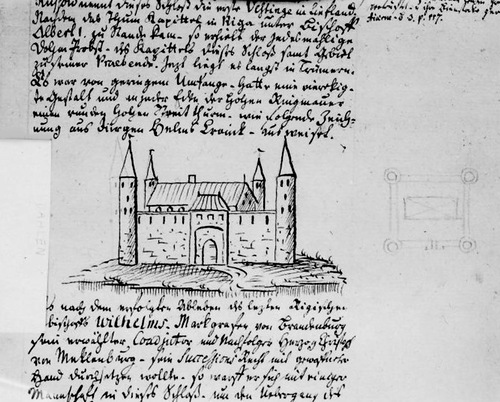 nennt dieses Schloß die erste Vestung in Liefland.
Nachdem das Thum Kapittel in Riga unter Bischoff
Albert I. zu Stande kam - so erhielt der jedesmahlige
Dohm Probst - des Kapittels dieses Schloß samt Gebiet
zu seiner Praebende. Jezt liegt es längst in Trümmern.
Es war von geringem Umfange - hatte eine viereckig-
te Gestalt und in jeder Ecke der hohen Ringmauer
einen runden hohen Streit thurm - wie folgende Zeich-
nung aus Jürgen Helms Cronick - ausweiset.
nach dem erfolgten Ableben des lezten Rigischen
Wilhelms - Markgrafen von Brandenburg
sein erwählter Coadjutor und Nachfolger Herzog Christoph
von Meklenburg - sein Successions Recht mit gewafneter
Hand durchsetzen wollte - so warf er sich mit einiger
Mannschaft in dieses Schloß - um den Uebergang des